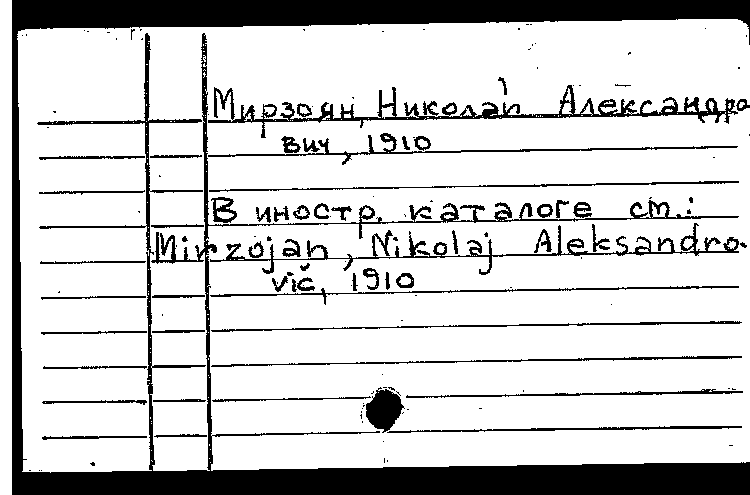 Мирзоян, Николай Александра
вич, 1910
В иностр. каталоге см.:
Mirzojan, Nikolaj Aleksandro-
vič, 1910